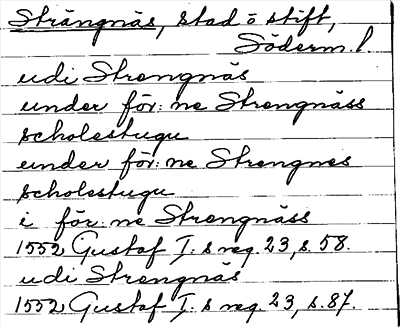 Strängnäs, stad o stift,
Söderm. l.
udi Strengnäs
under för: ne Strengnäss
scholestugu
under för: ne Strengnes
scholestugu
i för: ne Strengnäss
1552 Gustaf I: s reg. 23, s. 58.
udi Strengnäs
1552 Gustaf I: s reg. 23, s. 87.